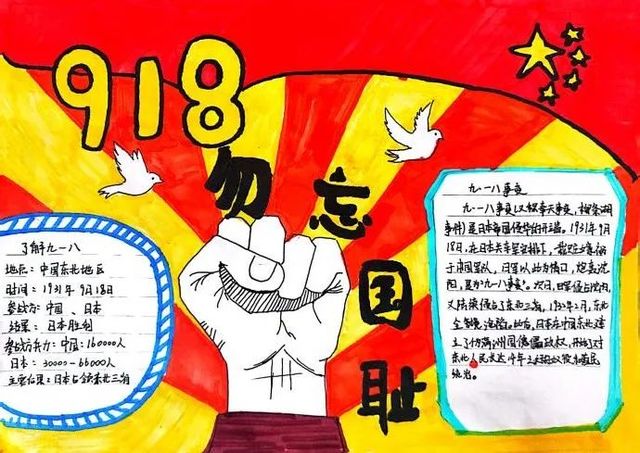 918
勿忘国耻
了解九一八
地区：中国东北地区
时间：1931年9月18日
参战方：中国、日本
结果：日本胜利
参战方兵力：中国：160000人
日本：30000-66000人
主要后果：日本占领东北三省
九一八事变
九一八事变(又称奉天事变，柳条湖
事件)是日本帝国侵华的开端。1931年9月
18日，在日本关东军安排下，
于中国军队，日军以此为借口，炮轰沈
阳，是为"九一八事变"。次日，日军侵占沈阳，
又陆续侵占了东北三省。1932年2月，东北
全境沦陷。此后，日本在中国东北建
立了伪满洲国傀儡政权，开始了对
东北人民长达14年之久的奴役和殖民
统治。